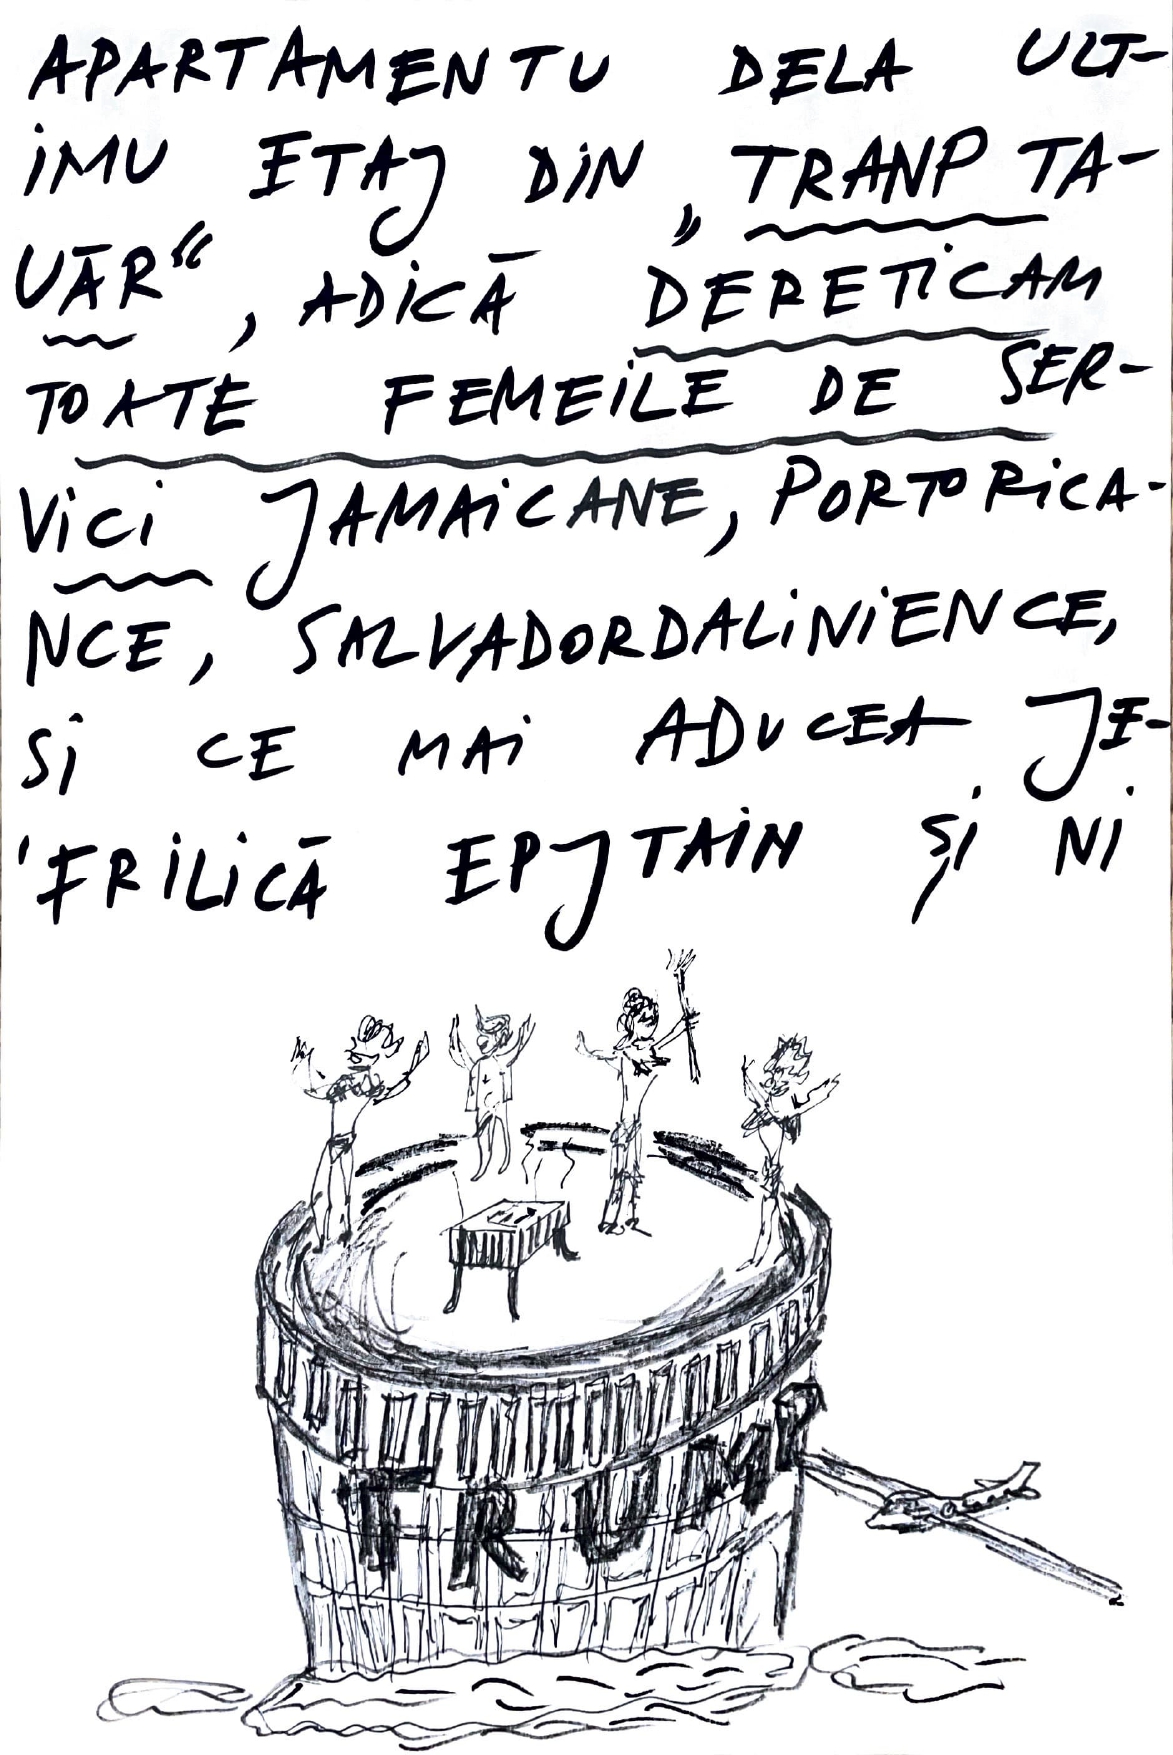 APARTAMENTU DELA ULT-
IMU ETAJ DIN „TRANP TA-
UĂR“, ADICĂ DEPETICAM
TOATE FEMEILE DE SER-
VICI JAMAICANE, PORTORICA-
NCE, SALVADORDALINIENCE,
SI CE MAI ADUCEA JE-
'FRILICĂ EPJTAIN ȘI NI
TRUMP